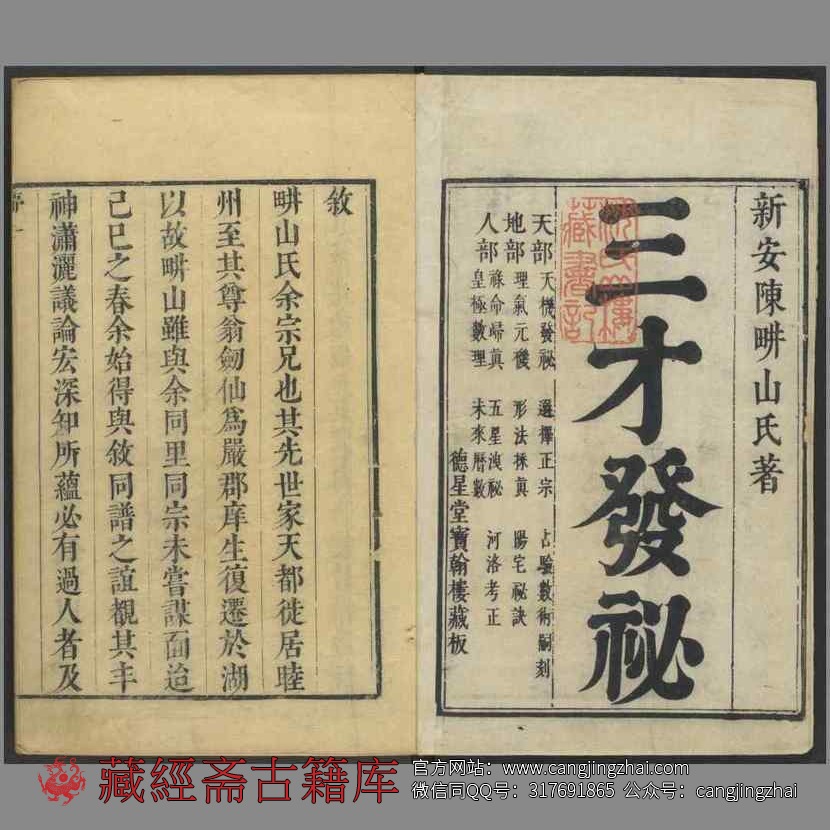 新安陳畊山氏著
三才發祕
天部 天機發祕 選擇正宗 占驗數術嗣刻
地部 理氣元機 形法採真 陽宅祕訣
人部 祿命歸真 五星洩祕 河洛考正
皇極數理 未來曆數
德星堂寶翰樓藏板
敘
畊山氏余宗兄也其先世家天都徙居睦
州至其尊翁劒仙爲嚴郡庠生復遷於湖
以故畊山雖與余同里同宗未嘗謀面迨
己巳之春余始得與敘同譜之誼覩其丰
神瀟灑議論宏深知所蘊必有過人者及
藏經斋古籍库
官方网站：www.cangjingzhai.com
微信同QQ号：317691865 公众号：cangjingzhai